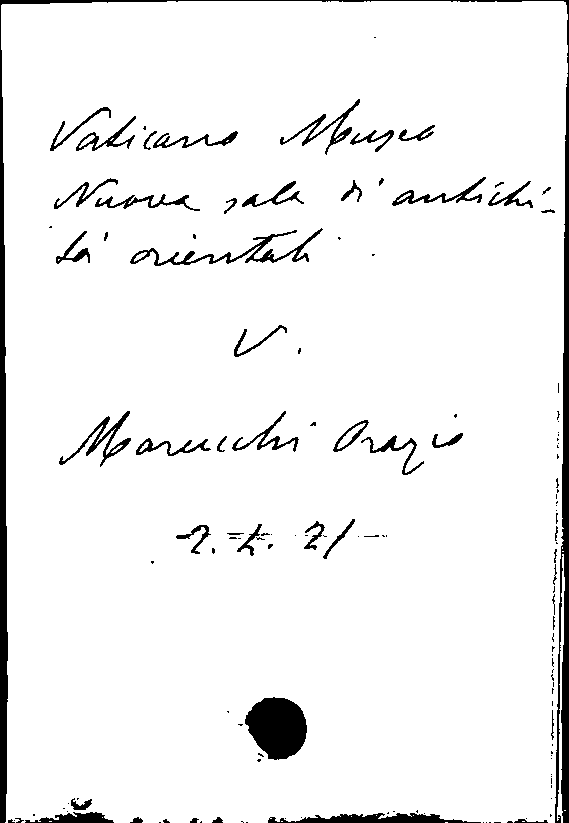 Vaticano Museo
Nuova sala di antichi-
tà orientali
V.
Marucchi Orazio
2. L. 21